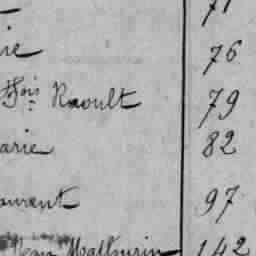 71
ie 76
Fçois Raoult 79
arie 82
aurent 97
Jean Mathurin 142